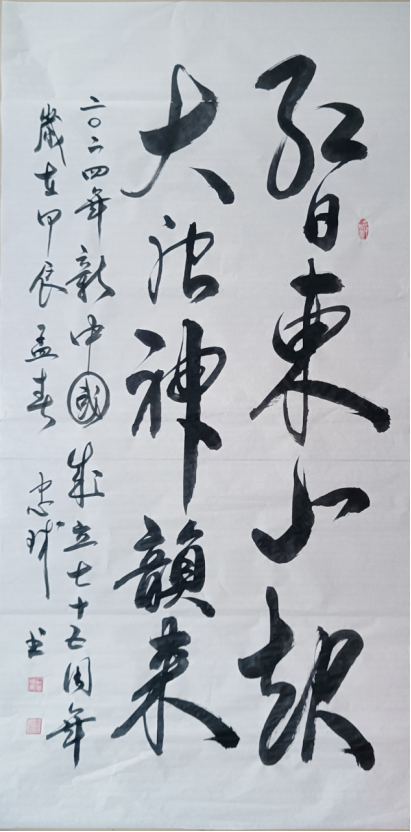 红日東山起
大神韻来
二〇二四年新中國成立七十五周年
歲在甲辰孟春 忠球书